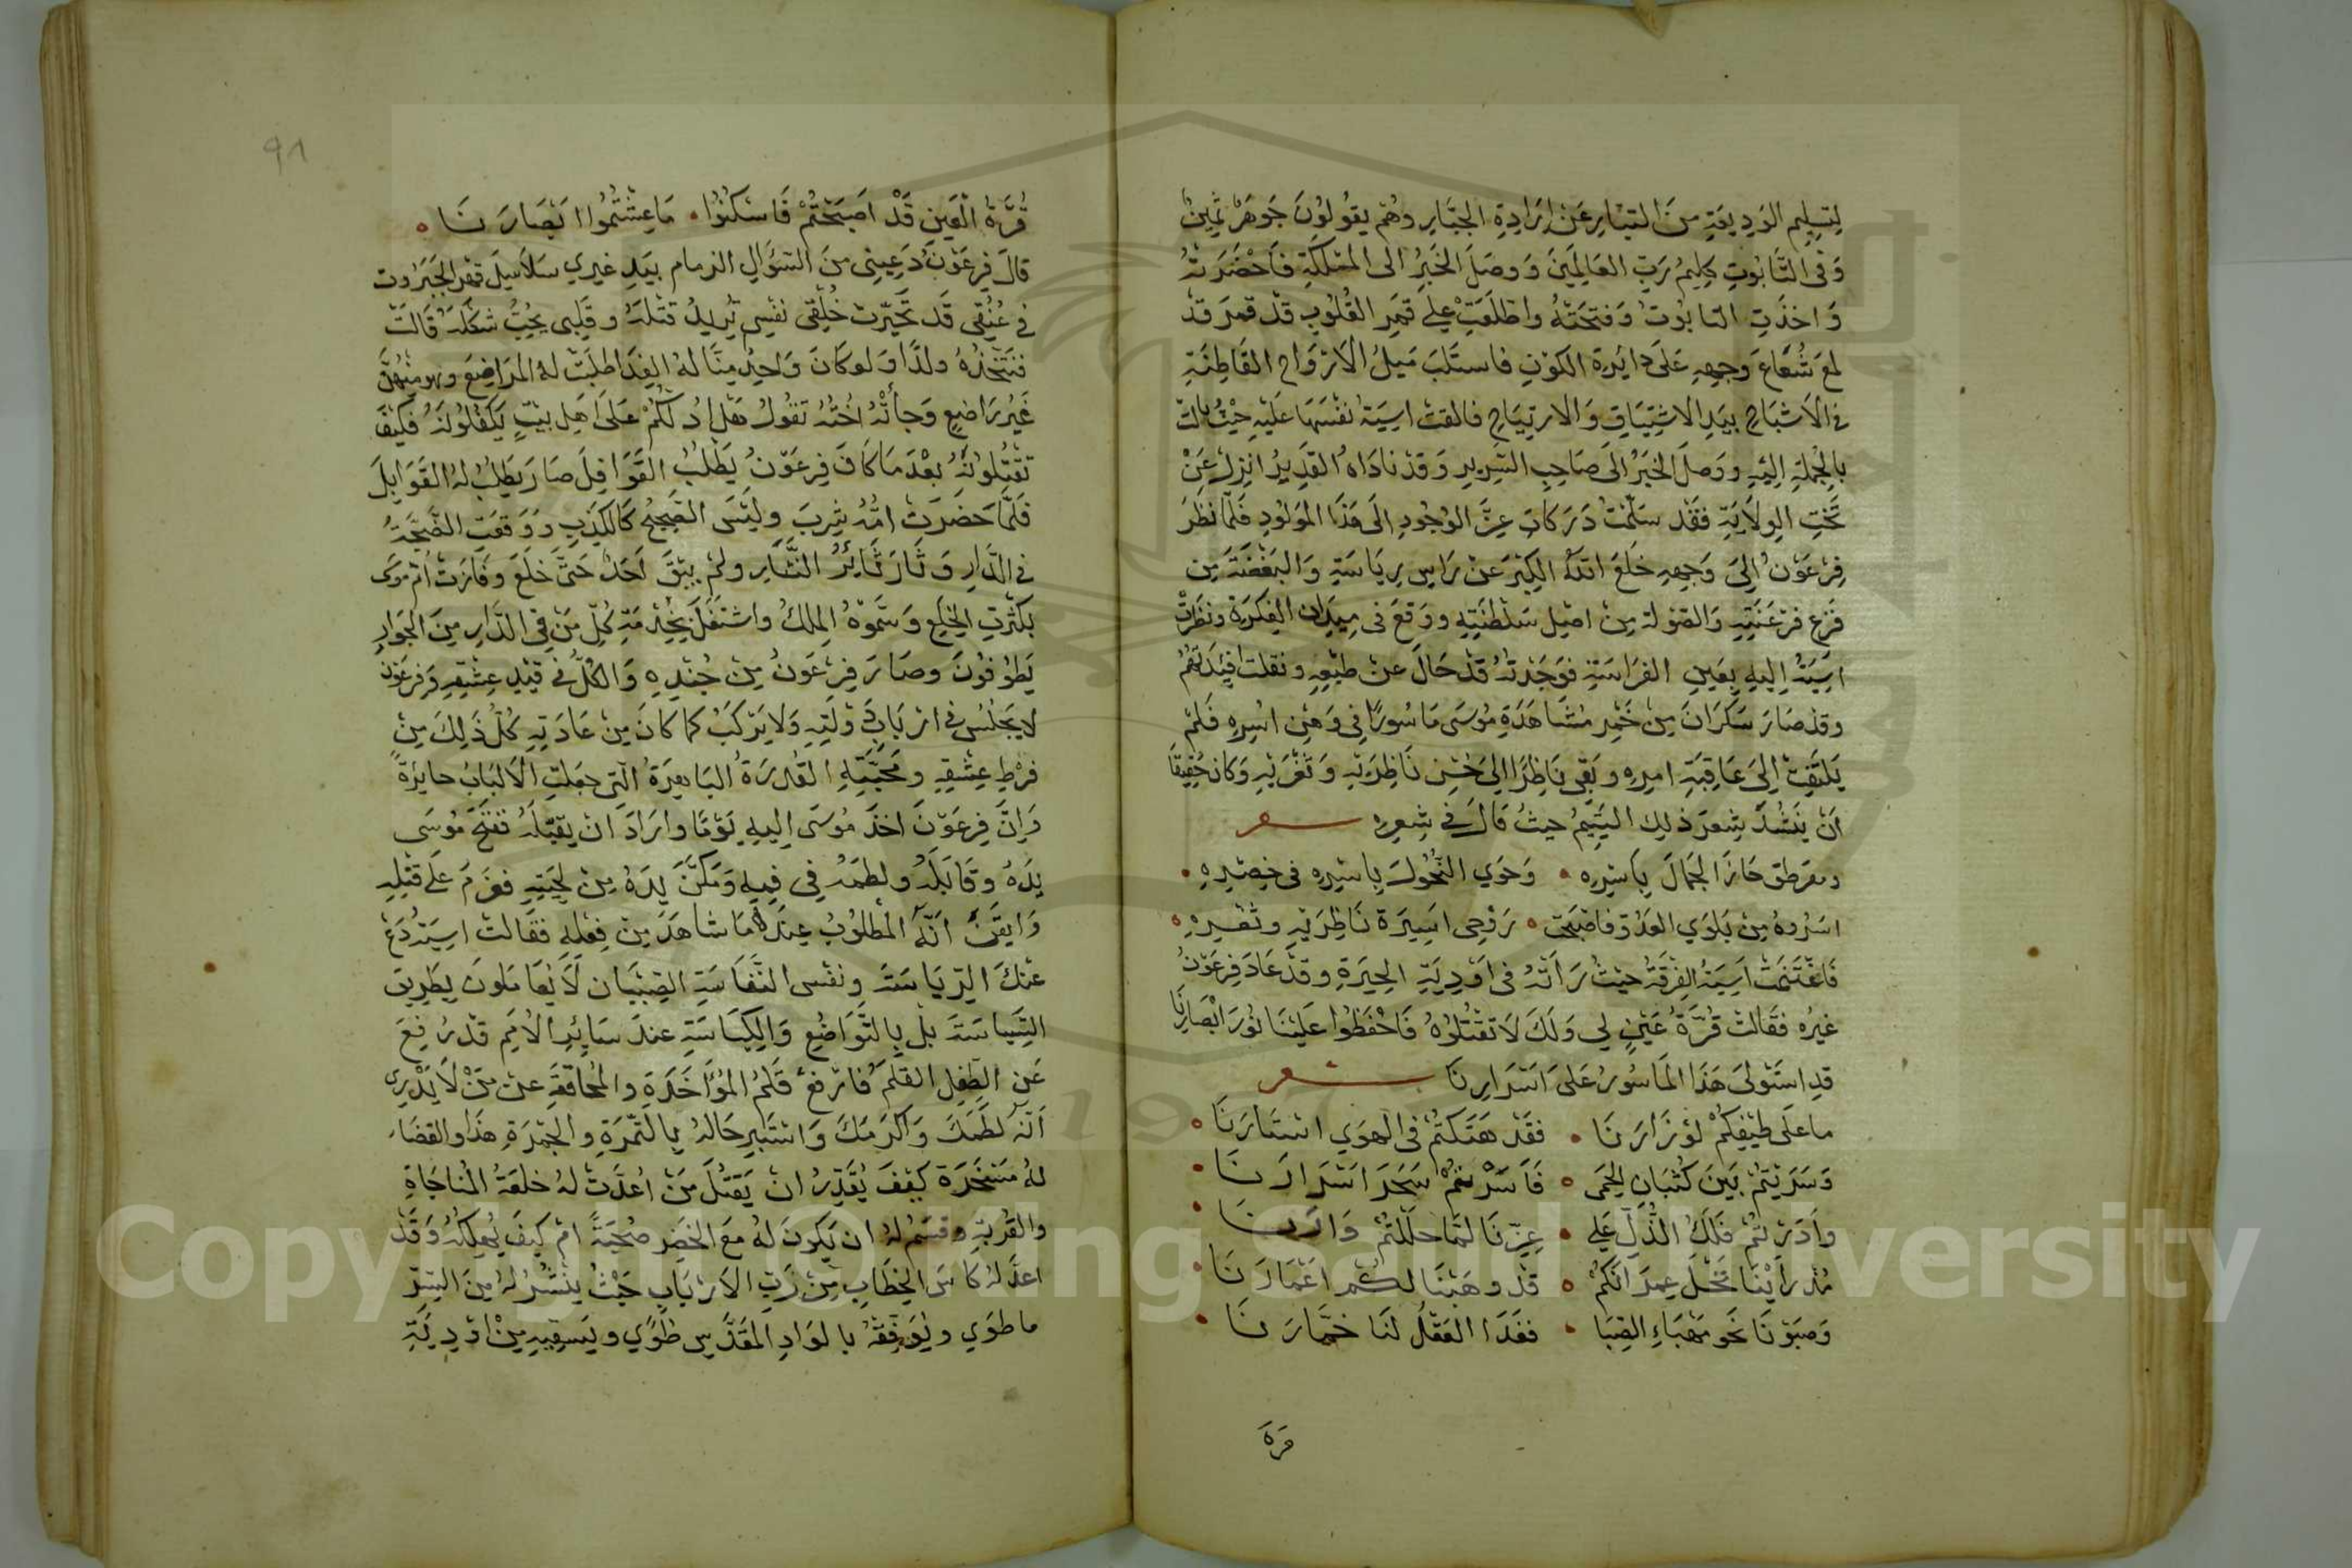 لِتسليم الوَديعَةِ منَ التيار عَن إرَادِةِ الجبَّارِ وهُم يقُولُونَ جَوهَرٌ ثمينٌ
وَفى التَّابُوتِ كِليمُ رَبِّ العَالمِينَ وَوصَلَ الخبَرُ الى المملكَةِ فَاحْضَرَتهُ
وَاخذَتِ التابُوتُ وَفتحَتْهُ واطَّلَعَتْ علي قمَرِ القُلُوبِ قدْ قمرَ قد
لمعَ شُعَاعَ وَجهِهِ عَلىَ دائِرةِ الكَونِ فاستَلَبَ مَيلُ الاَرْوَاح القَاطِنَةِ
فى الاَشبَاحِ بيَدِ الاشتِيَاقِ وَالارتيَاحِ فالقتْ اسِيَة نفْسَهَا عَليْهِ حيْثُ مالتْ
بالجُملَةِ اِليَهِ ووَصلَ الخبَرُ الىَ صَاحِبِ السَّرِيرِ وَقدْ نادَاهُ القَدِيرُ انزِلْ عَنْ
تَخْتِ الوِلاَيَةِ فقَد سَلّمتْ دَرَكاتِ عِزِّ الوُجُودِ الىَ هَذَا الموَلوُدِ فَلَمّا نظَرَ
فِرْعَوْنُ اِلىَ وَجهِهِ خلَعَ الكِبْرَ عَنْ رَاسِ رِيَاسَتِهِ وَالبَغْضَةَ مِن
فرَعِ فرْعَنَتِهِ وَالصَّوْلة مِنْ اصْلِ سَلْطَنَتِهِ ووَقعَ فى مِيدَان الفِكرَةِ ونظَرَتْ
اسِيَةُ اِليهِ بعَينِ الفرَاسَةِ فوَجَدتهُ قدْ حَالَ عنْ طبْعِهِ ونقلت افئِدَتهمُ
وقدْ صَارَ سَكرَانَ مِنْ خَمْرِ مُشَاهَدَةِ مُوسَى مَاسُورًا فى وَهْنِ اسْرِهِ فَلمْ
يَلتَفِتْ اِلىَ عَاقِبَةِ امرِهِ وبَقى نَاظِرًا اِلىَ حُسْنِ نَاظِرَيْهِ وَثغْرِهِ وَكانَ حَقِيقًا
اَنْ ينشُدَ شِعرَ ذلِكَ اليَتيمُ حيثُ قالَ فى شِعرِهِ شعر
ومقرطق حَازَ الجمَالَ بِاَسْرِهِ • وَحَوي النّحُولَ بِاسْرِهِ فى خِصْرِهِ •
اسَرُوهُ مِنْ بَلوَي العَدُوّ فاصْبَحَت • رُوْحِى اَسِيَرة نَاظِرَيْهِ وثغْرِهِ •
فَاغتَنمتْ اَسِيَةُ الفِرْقَةَ حيْثُ رَاَتْهُ فى اوْدِيَةِ الحِيرَةِ وقدْ عَادَ فِرعَوْنُ
غيرُه فقَالتْ قُرَّةُ عَيْنٍ لِي وَلَكَ لاَ تقتُلوُهُ فَاحْفظُوا عَليْنَا نوُرَ ابْصَارِنَا
قدِ استَوْلىَ هَذَا المَاسُورُ عَلىَ اسْرَارِنَا شعر
ما عَلىَ طيْفِكمُ لوْ زَارَنَا • فقَدْ هَتَكتُمْ فى الهوَي اسْتَارَنَا •
وَسَرَيْتُمْ بَينَ كُثبَانِ الحِمى • فَاَسَرْتمُ سَحَرَ اسْرَارَنَا •
وَاَدَرْتُمْ فَلَكَ الذُّلّ عَلي • عِزِّنَا لمَّا حلَلْتُمْ دَارَنَا •
مُذ رَاَيْنَا قدْ وهَبْنَا لكُم اعْمَارَنَا •
وَصبَوْنَا نحَو صَهْبَاءِ الصِّبَا • ففَدَا العَقلُ لنَا خمَّارَنَا •
قرة
٩٨
قُرَّةَ العَينِ قَدْ اَصبَحْتُمْ فَاسْكنُوا • مَا عِشْتُموُا ابْصَارَنَا •
قالَ فِرعَوْنُ دَعِينِى منَ السّؤَالِ الزمام بيَدِ غيرِي سَلاَسِيلَ قهْرِ الجَبَرُوت
فى عُنُقِى قَد تحَيّرت خلِقى نفسِى تُريدُ قتْلَهُ وقَلبى يُحِبُّ شكلَهُ قالتْ
فنتّخذُهُ ولدًا وَلو كَانَ وَاحِدٌ مِنّا لهُ الفِدَا طلبَتْ لهُ المرَاضِعَ وهو مِنهُنَّ
غَيْرُ رَاضِعٍ وَجأتهُ اختُهُ تقوُلُ هَل اَدُلكُمْ عَلىَ اَهلِ بيْتٍ يَكفُلُونَهُ فكَيْفَ
تقْتُلوُنهُ بعْدَ مَا كَانَ فِرعَوْنُ يَطْلبُ القوَافِلَ صَارَ يَطلبُ لهُ القوَابِلَ
فَلمَّا حَضَرَتْ امُّهُ شرِبَ ولَيْسَ الصَّحِيْحُ كَالكَذِبِ وَوَقعَتِ الضَّجَّةُ
فى الدَّارِ وَثارَ ثَايْرُ النّثَارِ ولمْ يبْقَ اَحَدٌ حَتىَّ خلَعَ وفَازَتْ اُم مُوسَى
بكثرَةِ الخِلَعِ وَسَمَّوْهُ المِلكُ واشتَغلَ بخِدْمَتهِ كلّ مَنْ فى الدَّارِ مِنَ الجَوَارِ
يَطُوفوُنَ وصَارَ فِرْعَونُ مِنْ جُنْدِهِ وَالكلّ فى قيْدِ عِشْقِهِ وَفِرعَوْن
لا يَجلسُ فى ارْبَابِ دَوْلَتِهِ وَلا يَركَبُ كما كَانَ مِنْ عَادَتِهِ كلّ ذَلِكَ مِنْ
فرْطِ عِشْقِهِ ومَحَبَّتِهِ القدْرَةُ البَاهِرَةُ الّتى جعَلتِ الاَلبَابَ حايرَةً
وَانَّ فِرعَوْنَ اخذَ مُوسَى اِليهِ يَوْمًا وارَادَ انْ يقَبّلهُ ففتَحَ مُوسَى
يدَهُ وقَابَلَهُ ولطمَهُ فى فِيهِ وَمَكنَ يدَهُ مِنْ لِحيَتِهِ فعَزمَ عَلى قتْلِهِ
وَايقَنَ انّهُ المطْلوُبُ عِندَهُ مَا شاهَدَ مِنْ فِعْلِهِ فقَالتْ اسِيَةُ دَعْ
عَنْكَ الرّيَاسَة ونفس النّفَاسَةِ الصّبْيَان لاَ يُعَامَلوُنَ بطَرِيق
السِّيَاسَة بلْ بِالتّوَاضُعِ وَالكِيَاسَةِ عندَ سَايْرِ الاُمَمِ قدْ رُفِعَ
عَن الطِّفلِ القَلَمَ فارْفعْ قَلَمُ المُؤَاخَذَةِ والمُحَاقَقَةِ عَنْ مَنْ لاَ يَدْرِى
اَنّهُ لطَمَكَ وَاَكرَمَكَ وَاسْتَبرِ حَالهُ بِالتَّمْرَةِ والجَمْرَةِ هَذَا والقضَاء
لهُ كَيْفَ يُقَدِّرُ انْ يَقتُلَ مَنْ اعُدّتْ لهُ خلعَةُ المُنَاجَاةِ
والقُرْبَةِ وقسَمَ لهُ ان يَكونَ لهُ مَعَ الخَضِرِ صُحْبَةً امْ كَيفَ يُهلِكهُ وَقَدْ
اعدَّ لهُ كَاسَ الخِطَابِ مِنْ رَبِّ الاَرْبَابِ حَيْثُ ينْشُرُ لهُ مِنَ السِّرّ
ما طَوَي ويُوَقِّفَهُ بالوَادِ المقَدَّسِ طُوًى ويَسقِيهِ مِنْ اوْدِيَةِ